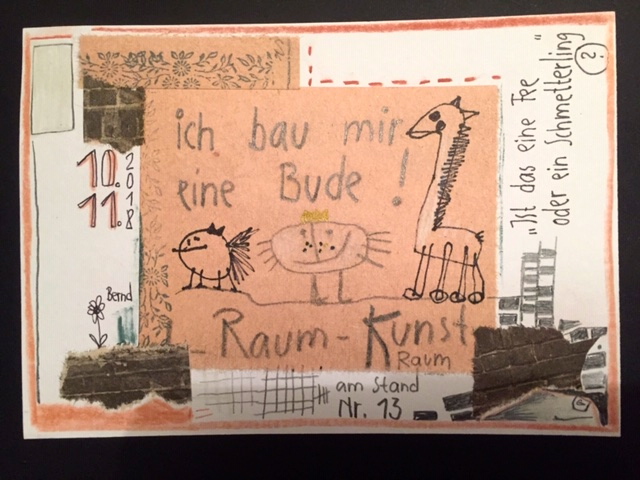 ich bau mir
eine Bude !
10. 2018
11.
Bernd
- Raum - Kunst
Raum
am Stand
Nr. 13
„Ist das eine Fee
oder ein Schmetterling"
?